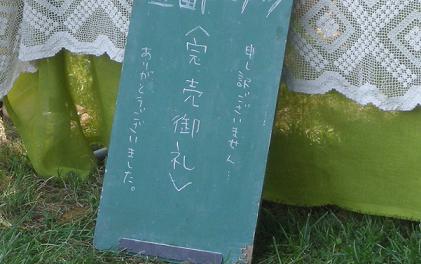 申し訳ございません…
〈完売御礼〉
ありがとうございました。